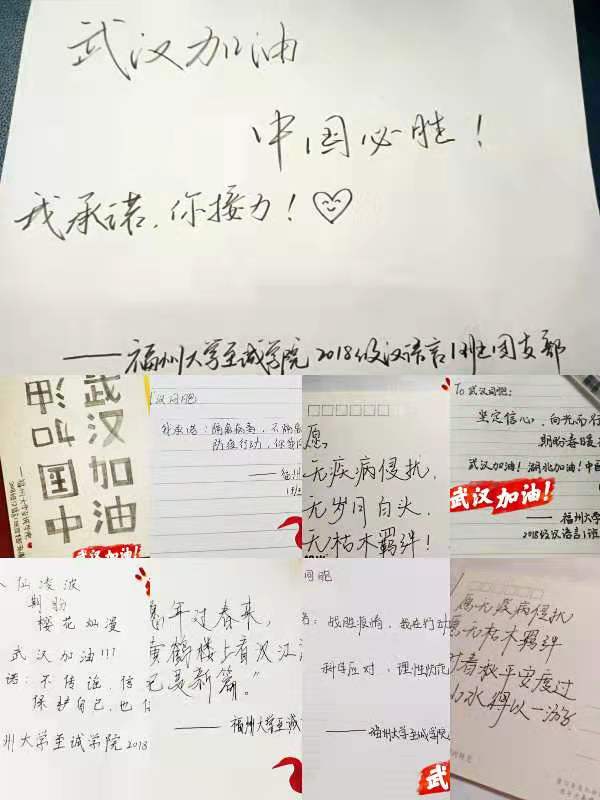 武汉加油
中国必胜！
我承诺，你接力！
——福州大学至诚学院2018级汉语言1班团支部
武汉
加油
中国
加油
武汉加油!
汉同胞
我承诺：隔离病毒，不隔离
防疫行动，你我同
——福州
1班
愿，
无疾病侵扰，
无岁月白头，
无枯木羁绊！
To 武汉同胞：
坚定信心，向光而行
期盼春暖
武汉加油！湖北加油！中
武汉加油!
——福州大学
2018级汉语言1班
仙凌波
期盼
樱花灿漫
武汉加油!!!
诺：不传谣、信
保护自己，也
州大学至诚学院2018
年过春来，
黄鹤楼上看汉江
已是新篇。”
——福州大学至诚
同胞
战胜疫情，我在行动
科学应对，理性防范
——福州大学至诚学院
武
愿无疾病侵扰
愿无枯木羁绊
平安度过
山水得以一游